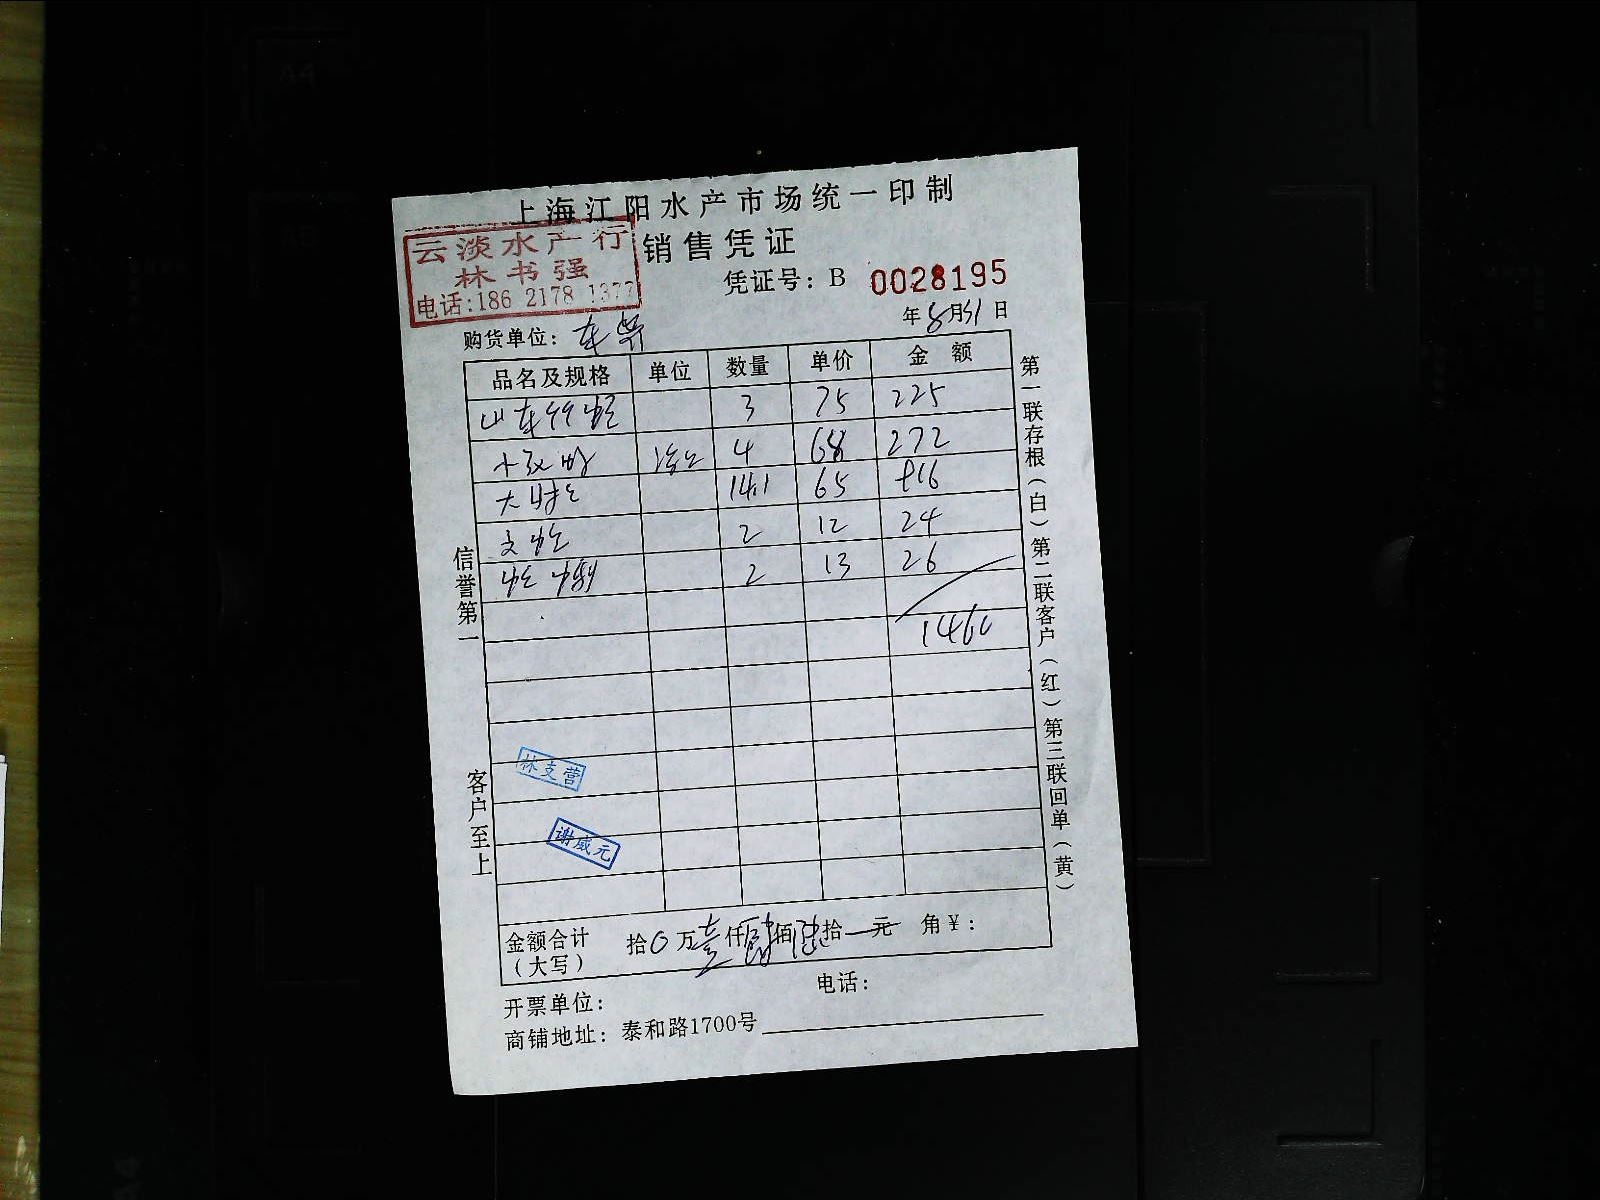 上海江阳水产市场统一印制
云淡水产行
林书强
电话:186 2178 1377
销售凭证
凭证号：B 0028195
年8月31日
购货单位：
品名及规格 单位 数量 单价 金额
山东 3 75 225
小 4 68 272
大 14.1 65 916
文蛤 2 12 24
蛏 2 13 26
1460
林支营
谢威元
金额合计（大写） 拾0万壹仟肆佰陆拾一元 角￥：
开票单位： 电话：
商铺地址：泰和路1700号
信誉第一
客户至上
第一联存根（白）第二联客户（红）第三联回单（黄）